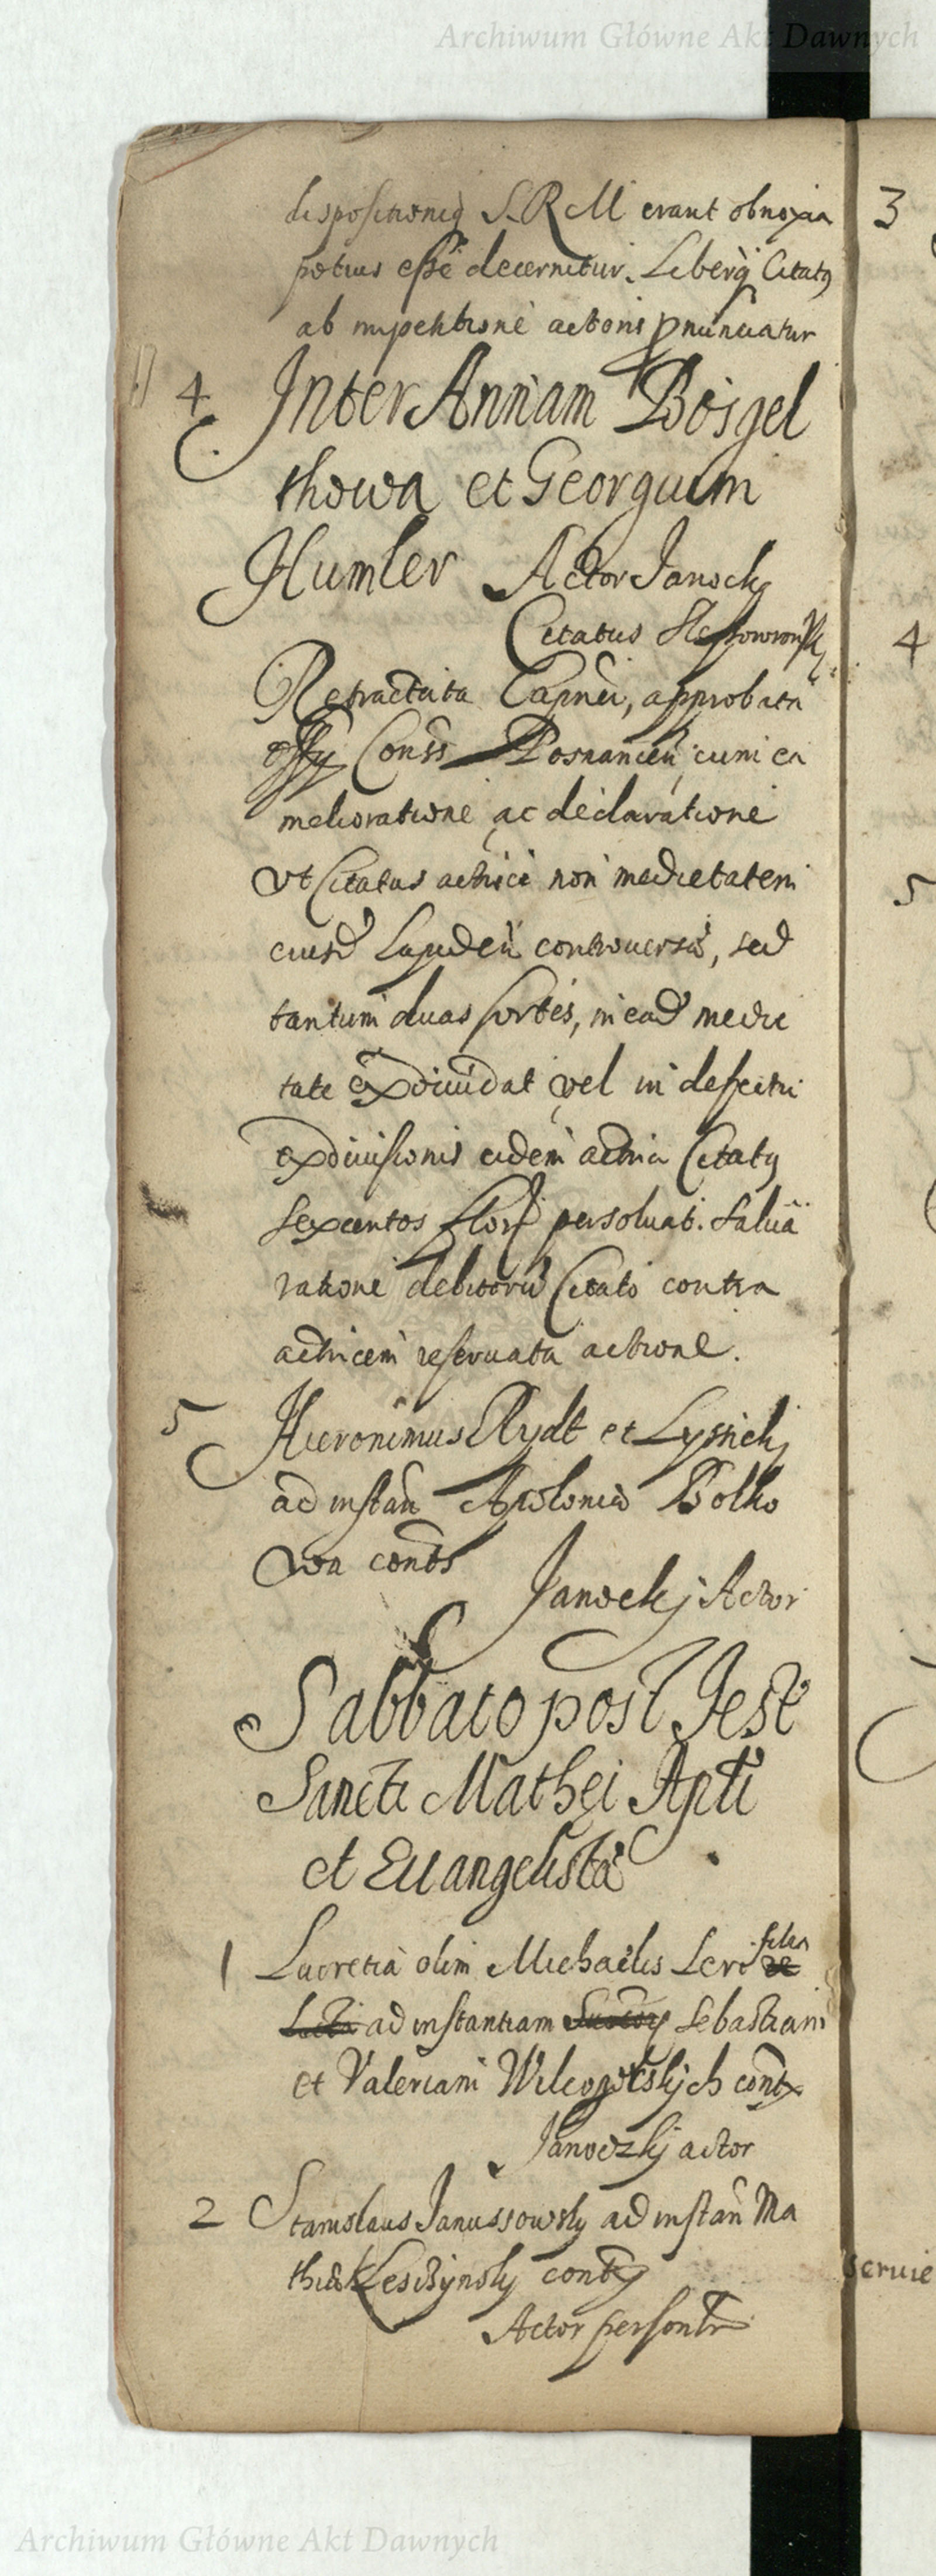 Archiwum Główne Akt Dawnych
dispositionią S.R.M erant obnoxia
potius esse decernitur. Liberq Citatq
ab impetitione actoris pnunciatur
4 Inter Annam Bosgel
thowa et Georgium
Humler Actor Janocky
Citatus
Retractata Capnei, approbata
offy Conss Posnancen, cum ea
melioratione ac declaratione
vt Citatus actrici non medietatem
eiusd Lapideu controversa, sed
tantum duas sortes, in ead medie
tate exdiuidat vel in defectu
exdiuisionis eidem actrici Citatq
sexcentos flor persoluat. Salua
ratione debitoru Citato contra
actricem reseruata actione.
5 Hieronimus Rydt et Lyssickj
ad instan Apolonia Bolko
wa conts
Janockj Actor
Sabbato post Fest
Sancti Mathei Apti
et Euangelista
1 Lucretia olim Michaelis Leri filia
ad instantiam Sebastiani
et Valeriani Wilcogorskich contx
Janoczkj actor
2 Stanislaus Janussowsky ad instan Ma
thia Lesczynsky
Actor personlr
3
4
5
seruie
Archiwum Główne Akt Dawnych